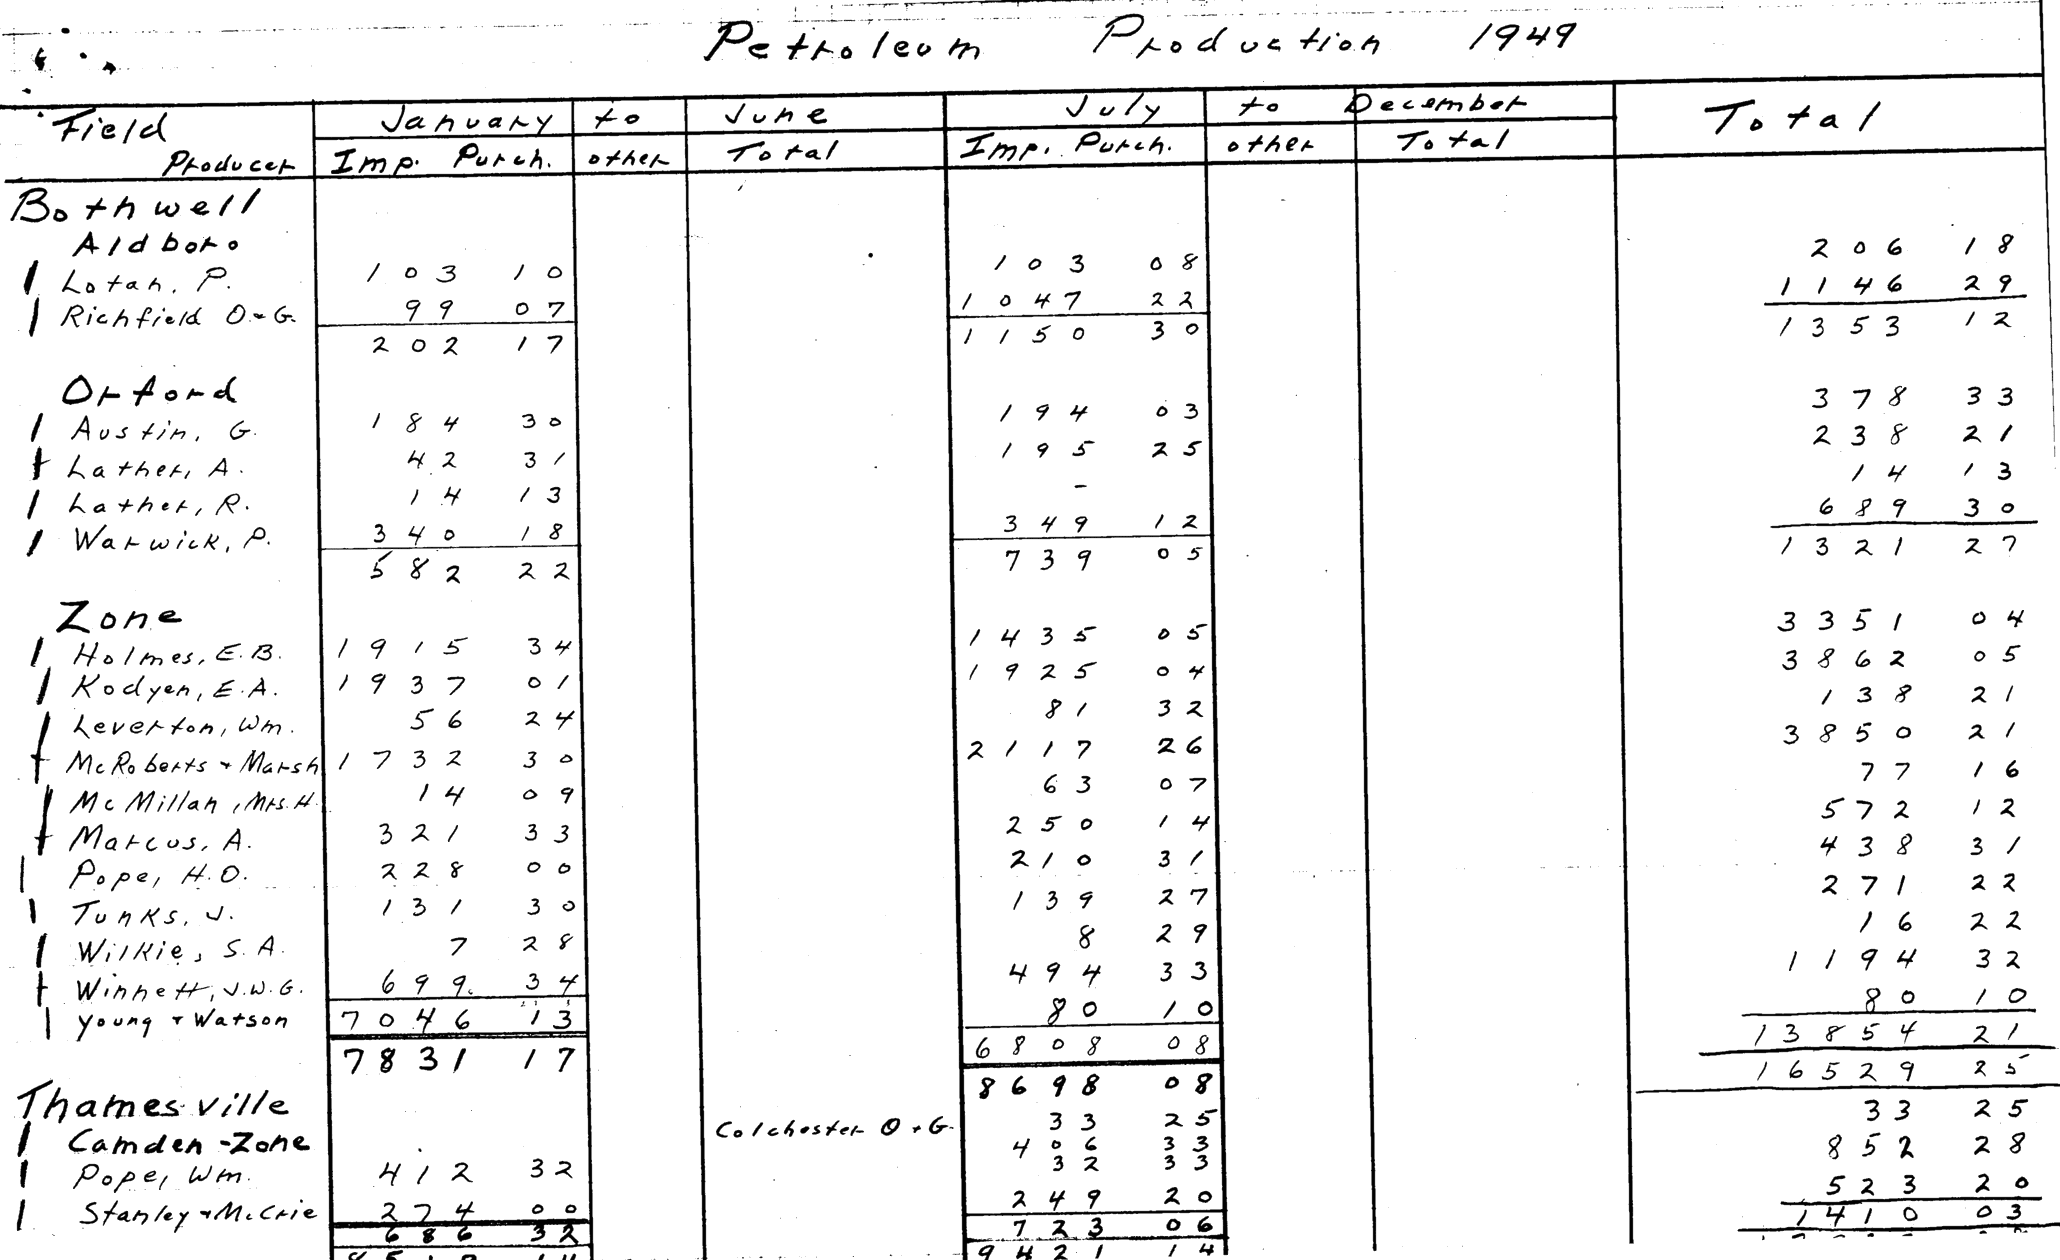 Petroleum Production 1949
Field January to June July to December Total
Producer Imp. Purch. other Total Imp. Purch. other Total
Bothwell
Aldboro
Lotan, P. 103 10 103 08 206 18
Richfield O+G. 99 07 1047 22 1146 29
202 17 1150 30 1353 12
Orford
Austin, G. 184 30 194 03 378 33
Lather, A. 42 31 195 25 238 21
Lather, R. 14 13 - 14 13
Warwick, P. 340 18 349 12 689 30
582 22 739 05 1321 27
Zone
Holmes, E.B. 1915 34 1435 05 3351 04
Kodyen, E.A. 1937 01 1925 04 3862 05
Leverton, Wm. 56 24 81 32 138 21
McRoberts + Marsh 1732 30 2117 26 3850 21
McMillan, Mrs. H. 14 09 63 07 77 16
Marcus, A. 321 33 250 14 572 12
Pope, H.O. 228 00 210 31 438 31
Tunks, J. 131 30 139 27 271 22
Wilkie, S.A. 7 28 8 29 16 22
Winnett, J.W.G. 699 34 494 33 1194 32
Young + Watson 80 10 80 10
7046 13 6808 08 13854 21
7831 17 8698 08 16529 25
Thamesville
Colchester O+G. 33 25 33 25
Camden-Zone 406 33
Pope, Wm. 412 32 32 33 852 28
Stanley + McCrie 274 00 249 20 523 20
686 32 723 06 1410 03
9421 14